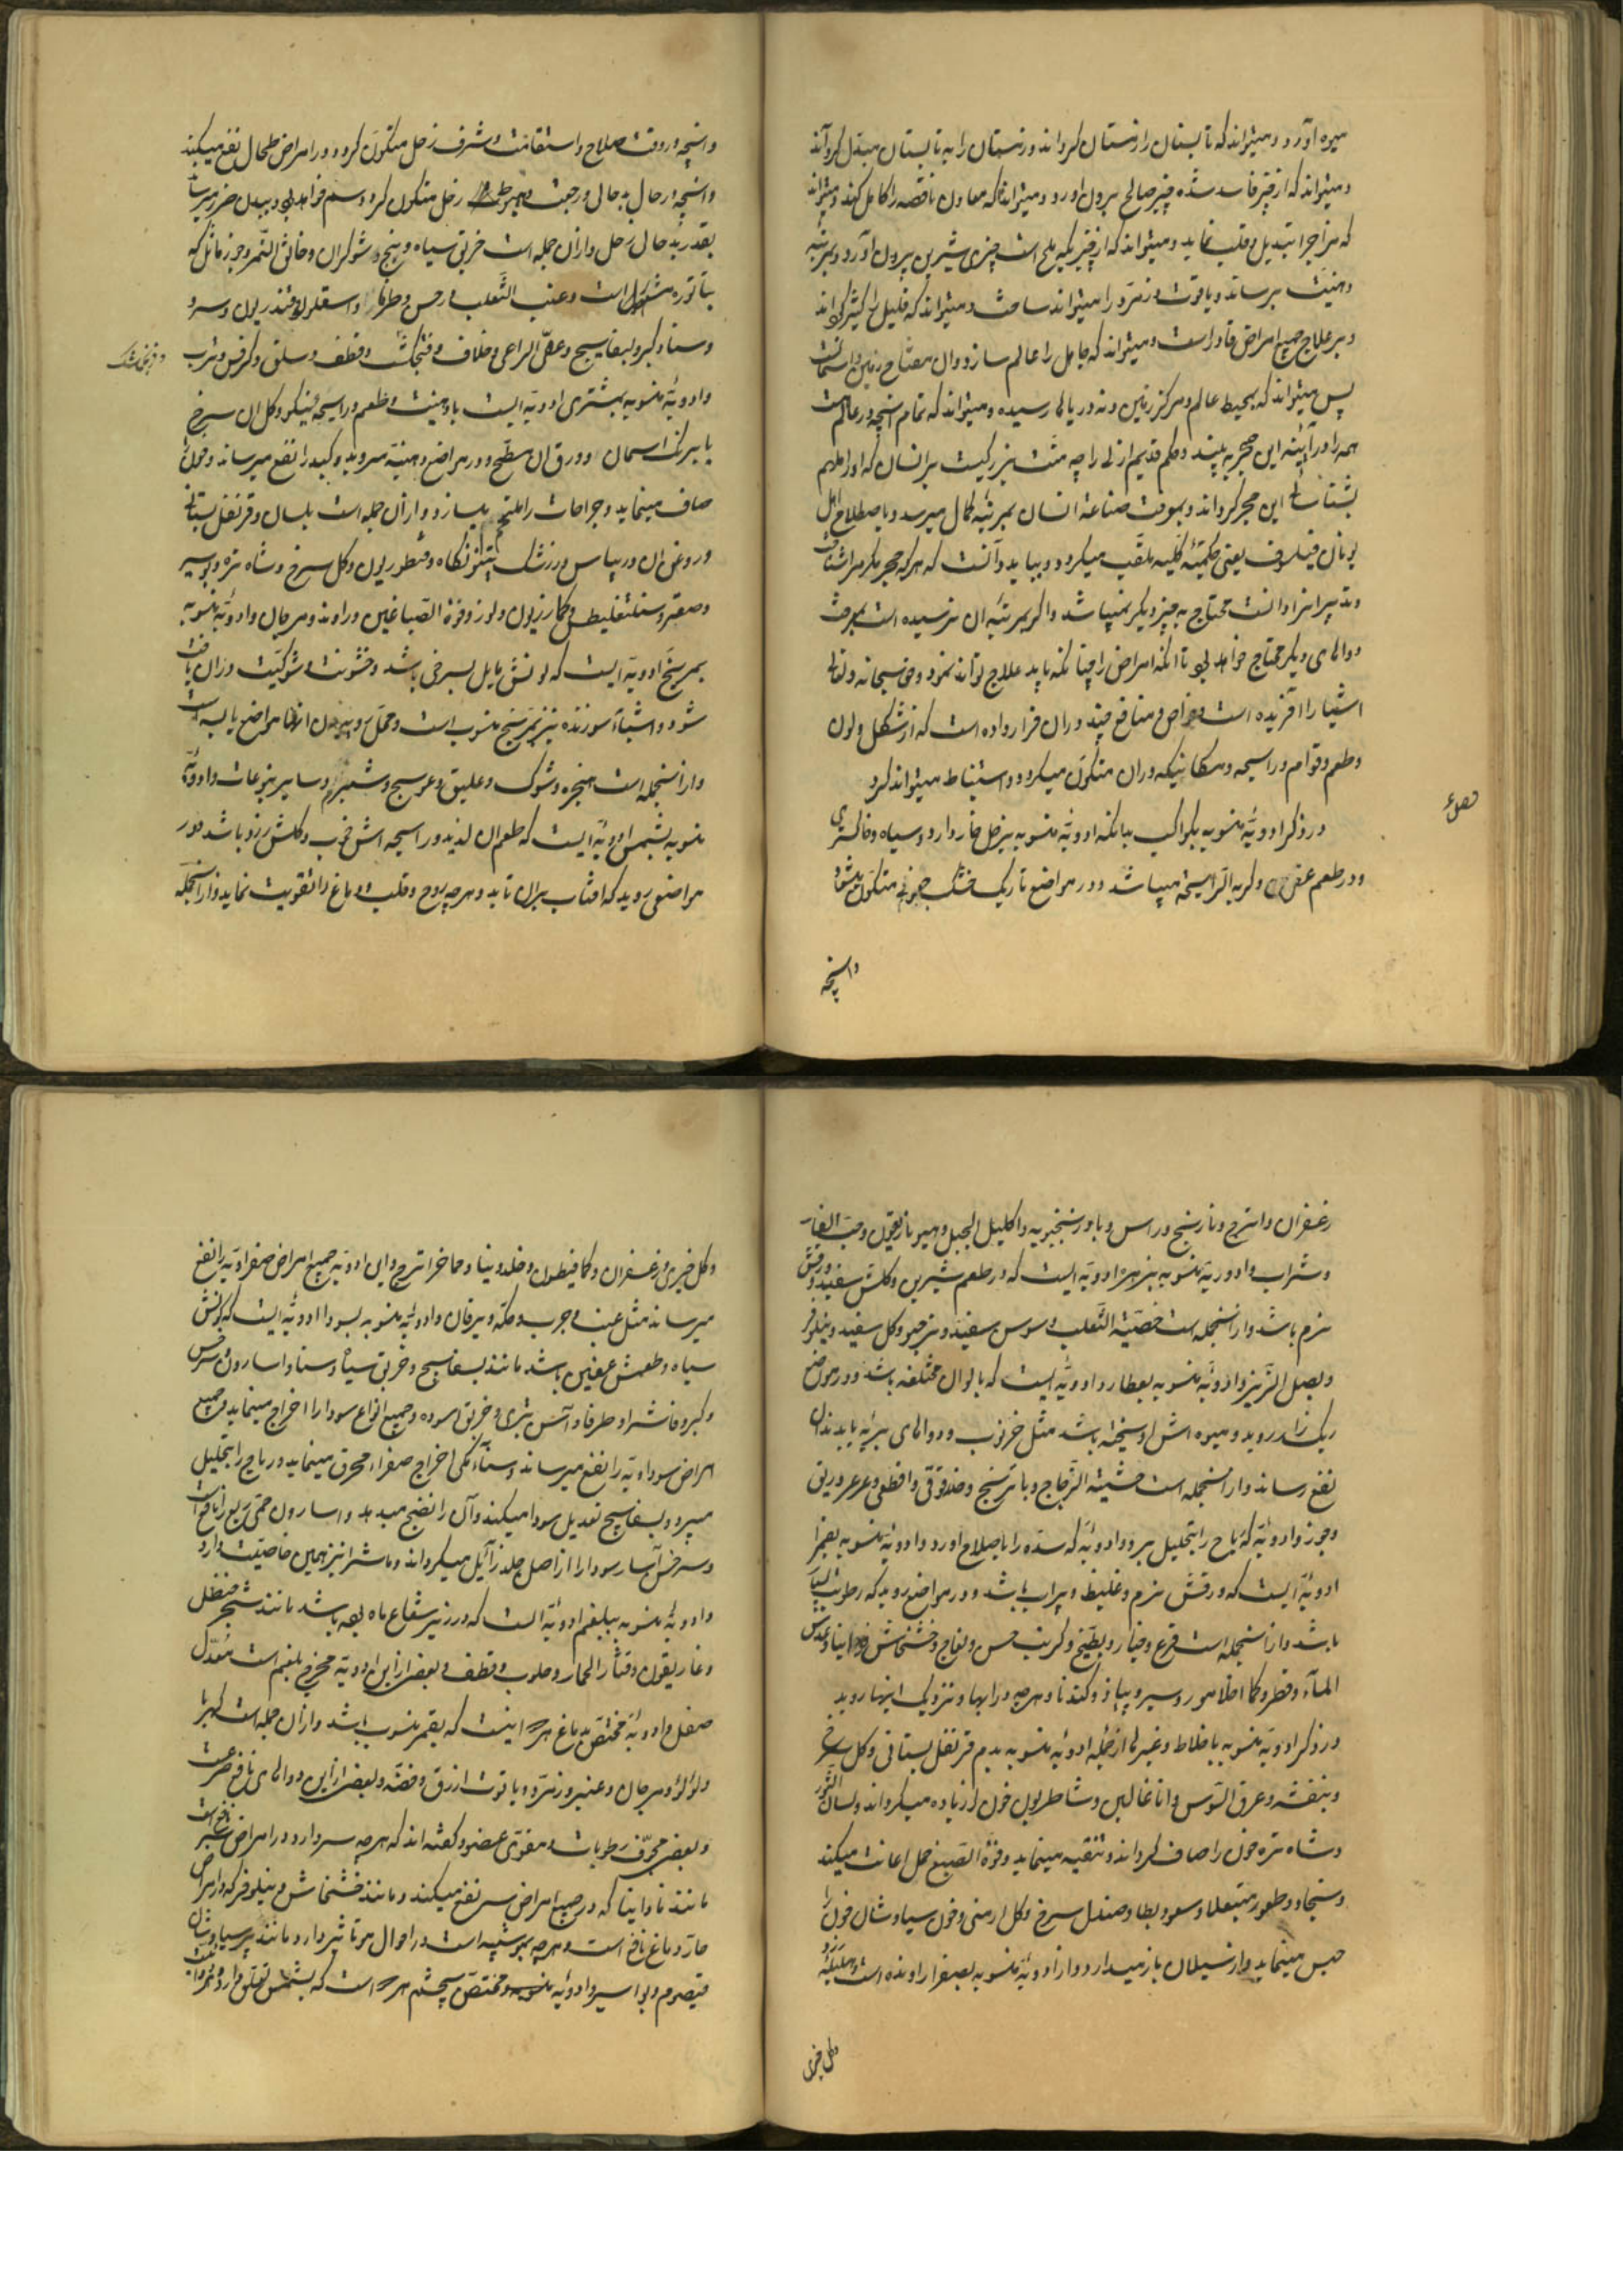 میوه آورد و میتواند که تابستان را زمستان گرداند و زمستان را به تابستان مبدل گرداند
و میتواند که از چیز فاسد شده چیز صالح بیرون اورد و میتواند که معادن ناقصه را کامل کند و میتواند
که مر اجزا تبدیل و قلب نماید و میتواند که از چیزیکه تلخ است چیزی شیرین بیرون آورد و بمرتبه
دهنیت برساند و یاقوت و زمرد را میتواند ساخت و میتواند که قلیل را کثیر گرداند
و بر علاج جمیع امراض قادر است و میتواند که جاهل را عالم سازد و ان مفتاح زمین و آسمانست
پس میتواند که بمحیط عالم و مرکز زمین و ته دریاها رسیده و میتواند که تمام انچه در عالم است
همه را در آینه این حجر به بیند و حکم قدیم ازلی را چه منت بزرگیست بر انسان که او را ملهم
بشناسائی این حجر گرداند و بمعرفت صناعة انسان بمرتبه کمال میرسد و باصطلاح اهل
یونان فیلسوف یعنی حکمیه کلیه ملقب میگردد و بباید دانست که هر که حجر مکرم را شناخت
و تدبیر انرا دانست محتاج به چیز دیگر نمیباشد و اگر بمرتبه ان نرسیده است بمعرفت
دواهای دیگر محتاج خواهد بود تا انکه امراض را چنانکه باید علاج تواند نمود و حق سبحانه و تعالی
اشیا را آفریده است و خواص و منافع چند در ان قرار داده است که از شکل و لون
و طعم و قوام و رایحه و مکانیکه در ان متکون میگردد استنباط میتواند کرد
فصل ۴
در ذکر ادویه منسوبه بکواکب بدانکه ادویه منسوبه بزحل خار دارد و سیاه و خاکستری
و در طعم عفص و کریه الرایحه میباشد و در مواضع تاریک خشک متکون میشود
و انچه
و انچه در وقت صلاح و استقامت و شرف زحل متکون گردد در امراض طحال نفع میکند
و انچه در حال بد حالی و رجعت و هبوط زحل متکون گردد سم خواهد بود و ببدن ضرر میرساند
بقدر بد حالی زحل و از ان جمله است خربق سیاه و بنج و شوکران و خانق النمر و جوز ماثل که
بتاتوره مشهور است و عنب الثعلب و سرخس و طرفا و اسقلوقندریون و سرو
و سنا و کبر و بسفایج و عصی الراعی و خلاف و فنجنکشت و قطف و سلق و کرفس و شراب
و ادویه منسوبه بمشتری ادویه ایست با دهنیت و طعم و رایحه نیکو و گل ان سرخ
یا برنگ اسمان و ورق ان مسطح و در مواضع دهنیه میروید و کبد را نفع میرساند و خون را
صاف مینماید و جراحات را ملتحم میسازد و از ان جمله است بلسان و قرنفل بستانی
و روغن ان و ریباس و زرشک و قنطوریون و گل سرخ و شاه تره و بواسیر
و صعتر و کمازریون و لوز و فوة الصباغین و راوند و مرجان و ادویه منسوبه
بمریخ ادویه ایست که لونش مایل بسرخی باشد و خشونت و شوکیت در ان یافت
شود و اشیاء سوزنده نیز بمریخ منسوب است و محل روییدن انها مواضع یابسه است
و از انجمله است انجره و شوک و علیق و عوسج و شبرم و سایر یتوعات و ادویه
منسوبه بشمس ادویه ایست که طعم ان لذیذ و رایحه اش خوب و گلش زرد باشد و در
مواضعی روید که افتاب بران تابد و هر چه روح و قلب و دماغ را تقویت نماید و از انجمله
زعفران و اترج و نارنج و راس و بادرنجبویه و اکلیل الجبل و هیوفاریقون و حب الغار
و شراب و ادویه منسوبه بزهره ادویه ایست که در طعم شیرین و گلش سفید و ورقش
نرم باشد و از انجمله است خصیة الثعلب و سوسن سفید و نرجس و گل سفید و نیلوفر
و بصل الزیز و ادویه منسوبه بعطارد ادویه ایست که بالوان مختلفه باشد و در مواضع
ریک زار روید و میوه اش باشد مثل خرنوب و دواهای بریه یا بدندان
نفع رساند و از انجمله است حشیشة الزجاج و بادرنج و حندقوقی و اقطی و عرعر و ریق
و جوز و ادویه که ریاح را بتحلیل برد و ادویه که سده را باصلاح اورد و ادویه منسوبه بقمر
ادویه ایست که ورقش نرم و غلیظ و پر اب باشد و در مواضعی روید که رطوبت بسیار
باشد و از انجمله است قرع و خیار و بطیخ و کرنب و خس و لفاح و خشخاش و عدس
الماء و فطر و کما و سیر و پیاز و گندنا و هر چه در ابها و نزدیک اینها روید
در ذکر ادویه منسوبه باخلاط و غیرها از جمله ادویه منسوبه بدم قرنفل بستانی و گل سرخ
و بنفشه و عرق السوس و اناغالیس و شاطریون خون را زیاده میگرداند و لسان الثور
و شاه تره خون را صاف گرداند و تنقیه مینماید و فوة الصبغ حمل اعانت میکند
و صندل سرخ و گل ارمنی و خون سیاوشان خون را
حبس مینماید و از سیلان باز میدارد و از ادویه منسوبه بصفرا راوند است و هلیله زرد
و گل خیری
و گل خیری و زعفران و کمافیطوس و خلدونیا و حماض اترج و این ادویه جمیع امراض صفراویه را نفع
میرساند مثل غب و جرب و حکه و یرقان و ادویه منسوبه بسودا ادویه ایست که لونش
سیاه و طعمش عفص باشد مانند بسفایج و خربق سیاه و سنا و اسارون و سرخس
و کبر و فاشرا و طرفا و آس بری و جمیع انواع سودا را اخراج مینماید و جمیع
امراض سوداویه را نفع میرساند و سناء مکی اخراج صفراء محرق مینماید و ریاح را بتحلیل
میبرد و بسفایج تعدیل سودا میکند و آن را نضج میدهد و اسارون حمی ربع را نافع است
و سرخس آثار سودا را از اصل جلد زایل میگرداند و فاشرا نیز همین خاصیت دارد
و ادویه منسوبه ببلغم ادویه ایست که در زیر شعاع ماه باشد مانند شحم حنظل
و غاریقون و قثاء الحمار و حلوب و قطف و بعضی از این ادویه مخرج بلغم است معدل
و ادویه مختصه بدماغ اینست که بقمر منسوب باشد و از ان جمله است کهربا
و لولو و مرجان و عنبر و زمرد و یاقوت ازرق و فضه و بعضی از این دواهای نافع صرعست
و بعضی مجفف رطوبات و مقوی عضو و گفته اند که هر چه سر دارد در امراض سر نافع است
مانند که در جمیع امراض سر نفع میکند و مانند خشخاش و نیلوفر که در امراض
حار دماغ نافع است و هر چه بمو شبیه است در احوال مو تاثیر دارد و مانند پرسیاوشان
قیصوم و بواسیر و ادویه مختص چشم است که بشمس تعلق دارد